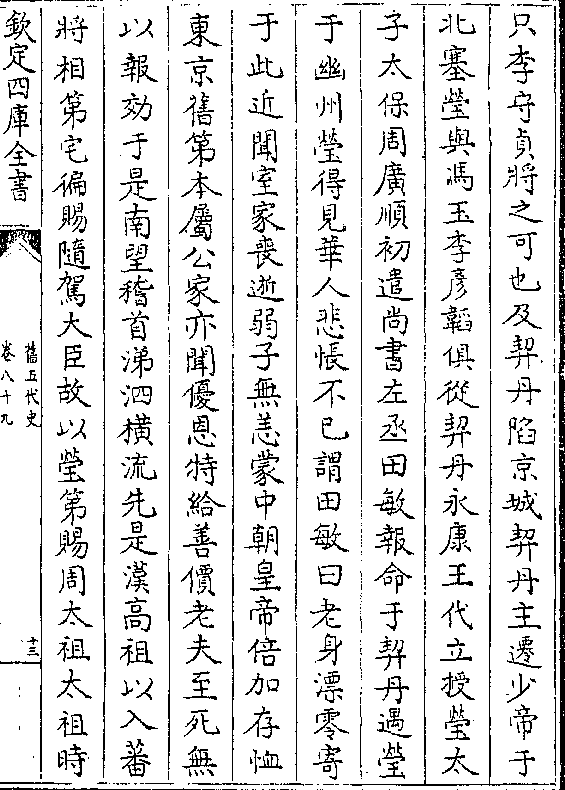 只李守貞將之可也及契丹陷京城契丹主遷少帝于
北塞瑩與馮玉李彦韜俱從契丹永康王代立授瑩太
子太保周廣順初遣尚書左丞田敏報命于契丹遇瑩
于幽州瑩得見華人悲悵不已謂田敏曰老身漂零寄
于此近聞室家喪逝弱子無恙蒙中朝皇帝倍加存恤
東京舊第本屬公家亦聞優恩特給善價老夫至死無
以報効于是南望稽首涕泗橫流先是漢高祖以入蕃
將相第宅徧賜隨駕大臣故以瑩第賜周太祖太祖時
欽定四庫全書
舊五代史
卷八十九
十三